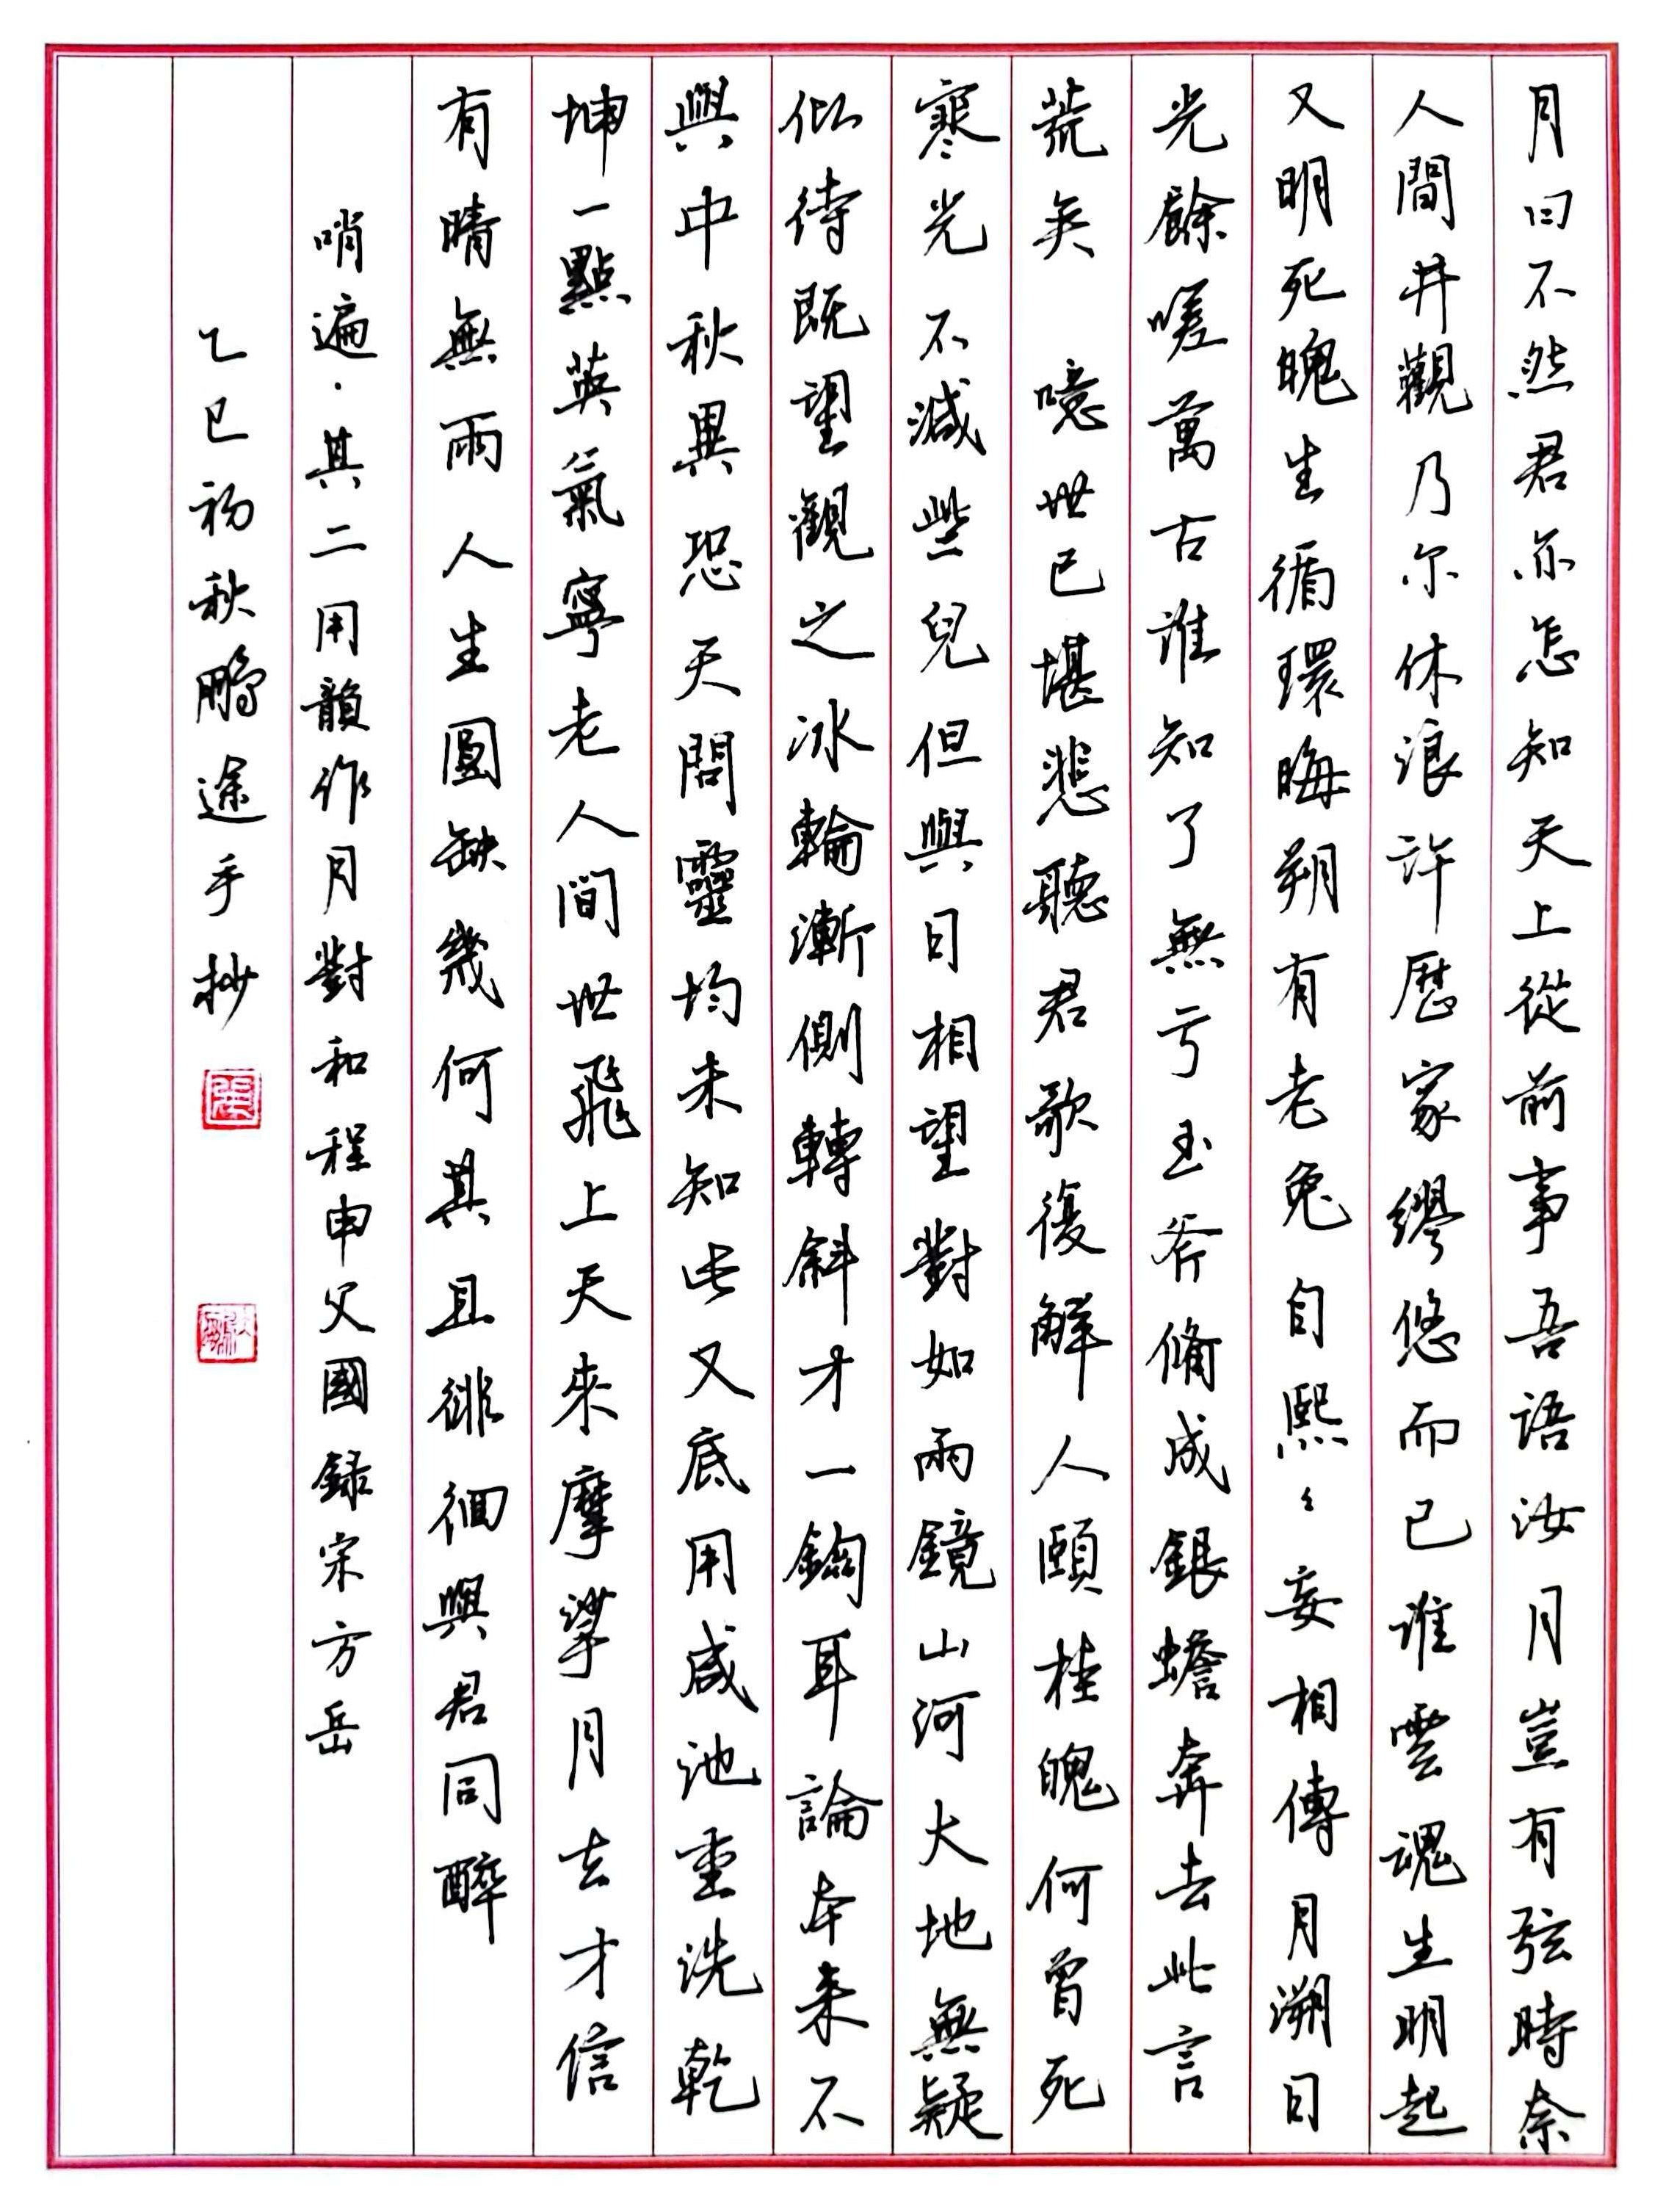 月曰不然君亦怎知天上從前事吾語汝月豈有弦時奈
人間井觀乃尔休浪許曆家繆悠而已誰雲魂生明起
又明死魄生循環晦朔有老兔自熙々妄相傳月溯日
光餘嗟萬古誰知了無亏玉斧脩成銀蟾奔去此言
荒矣 噫世已堪悲聽君歌復解人頤桂魄何曾死
寒光不減些兒但與日相望對如兩鏡山河大地無疑
似待既望觀之冰輪漸側轉斜才一鉤耳論本來不
與中秋異恐天問靈均未知此又底用咸池重洗乾
坤一點英氣寧老人間世飛上天來摩挲月去才信
有晴無雨人生圓缺幾何其且徘徊與君同醉
哨遍·其二用韻作月對和程申父國録宋方岳
乙巳初秋鵬途手抄